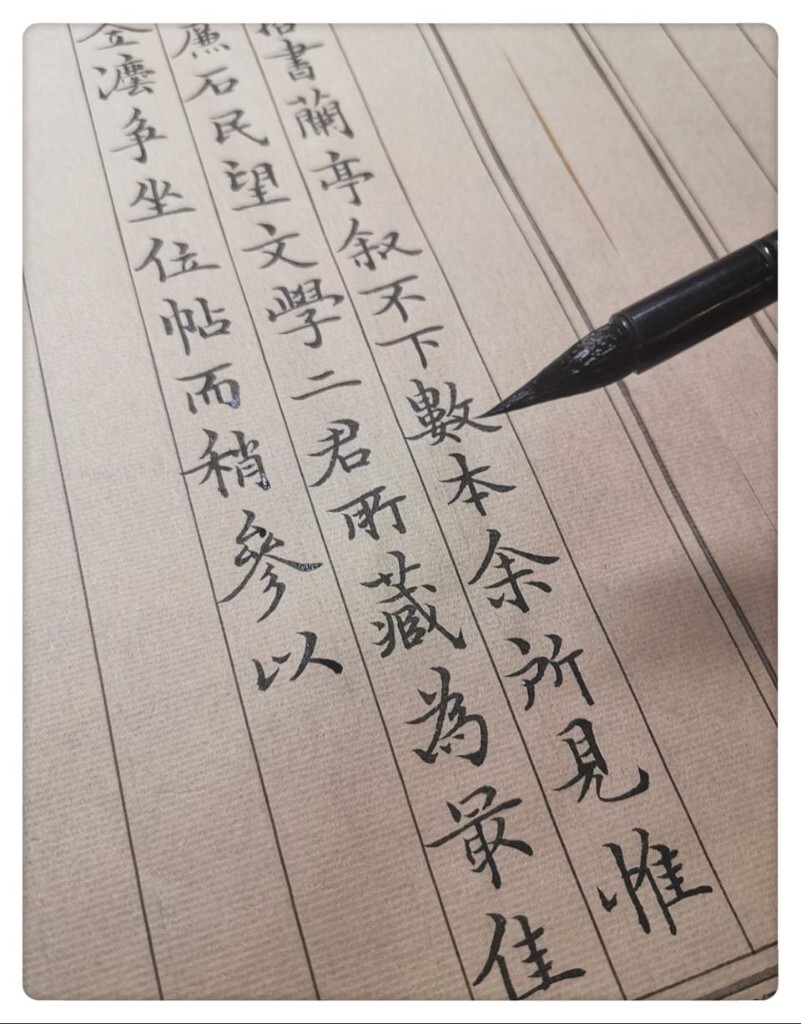 書蘭亭叙不下數本余所見惟
廉石民望文學二君所藏為最佳
全灋爭坐位帖而稍參以